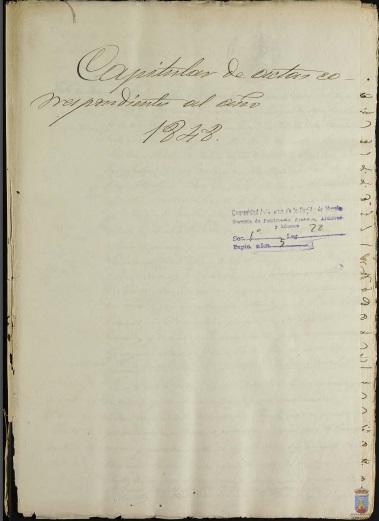 Capitular de actas co-
rrespondientes al año
1848.
Comunidad Autónoma de la Región de Murcia
Servicio de Patrimonio
Archivos
y Museos 22
Sec. 1º Leg.
Expte. núm. 5